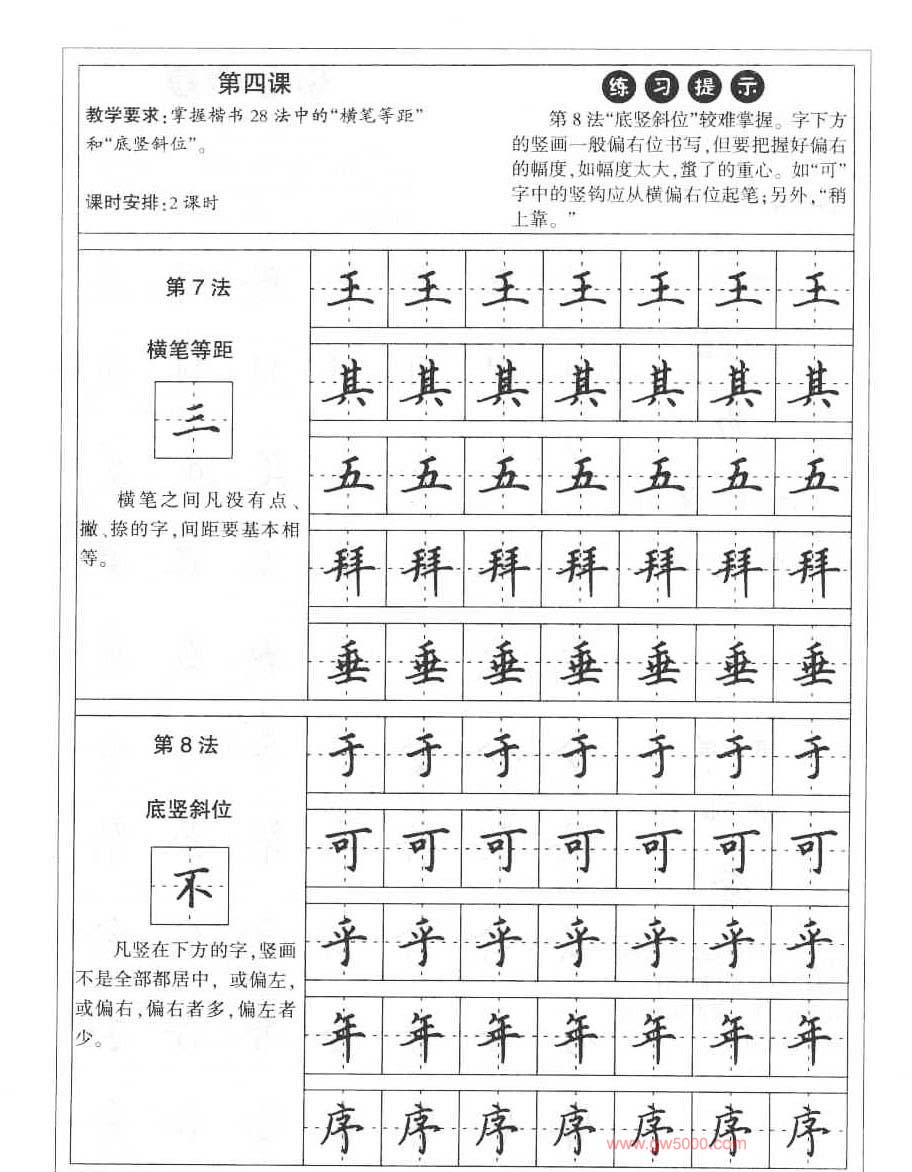 第四课
教学要求:掌握楷书28法中的“横笔等距”
和“底竖斜位”。
课时安排:2课时
练习提示
第8法“底竖斜位”较难掌握。字下方
的竖画一般偏右位书写,但要把握好偏右
的幅度,如幅度太大,蜇了的重心。如“可”
字中的竖钩应从横偏右位起笔;另外,“稍
上靠。”
第7法
横笔等距
三
横笔之间凡没有点、
撇、捺的字,间距要基本相
等。
王王王王王王王
其其其其其其其
五五五五五五五
拜拜拜拜拜拜拜
垂垂垂垂垂垂垂
第8法
底竖斜位
不
凡竖在下方的字,竖画
不是全部都居中,或偏左,
或偏右,偏右者多,偏左者
少。
于于于于于于于
可可可可可可可
乎乎乎乎乎乎乎
年年年年年年年
序序序序序序序
www.gw5000.com